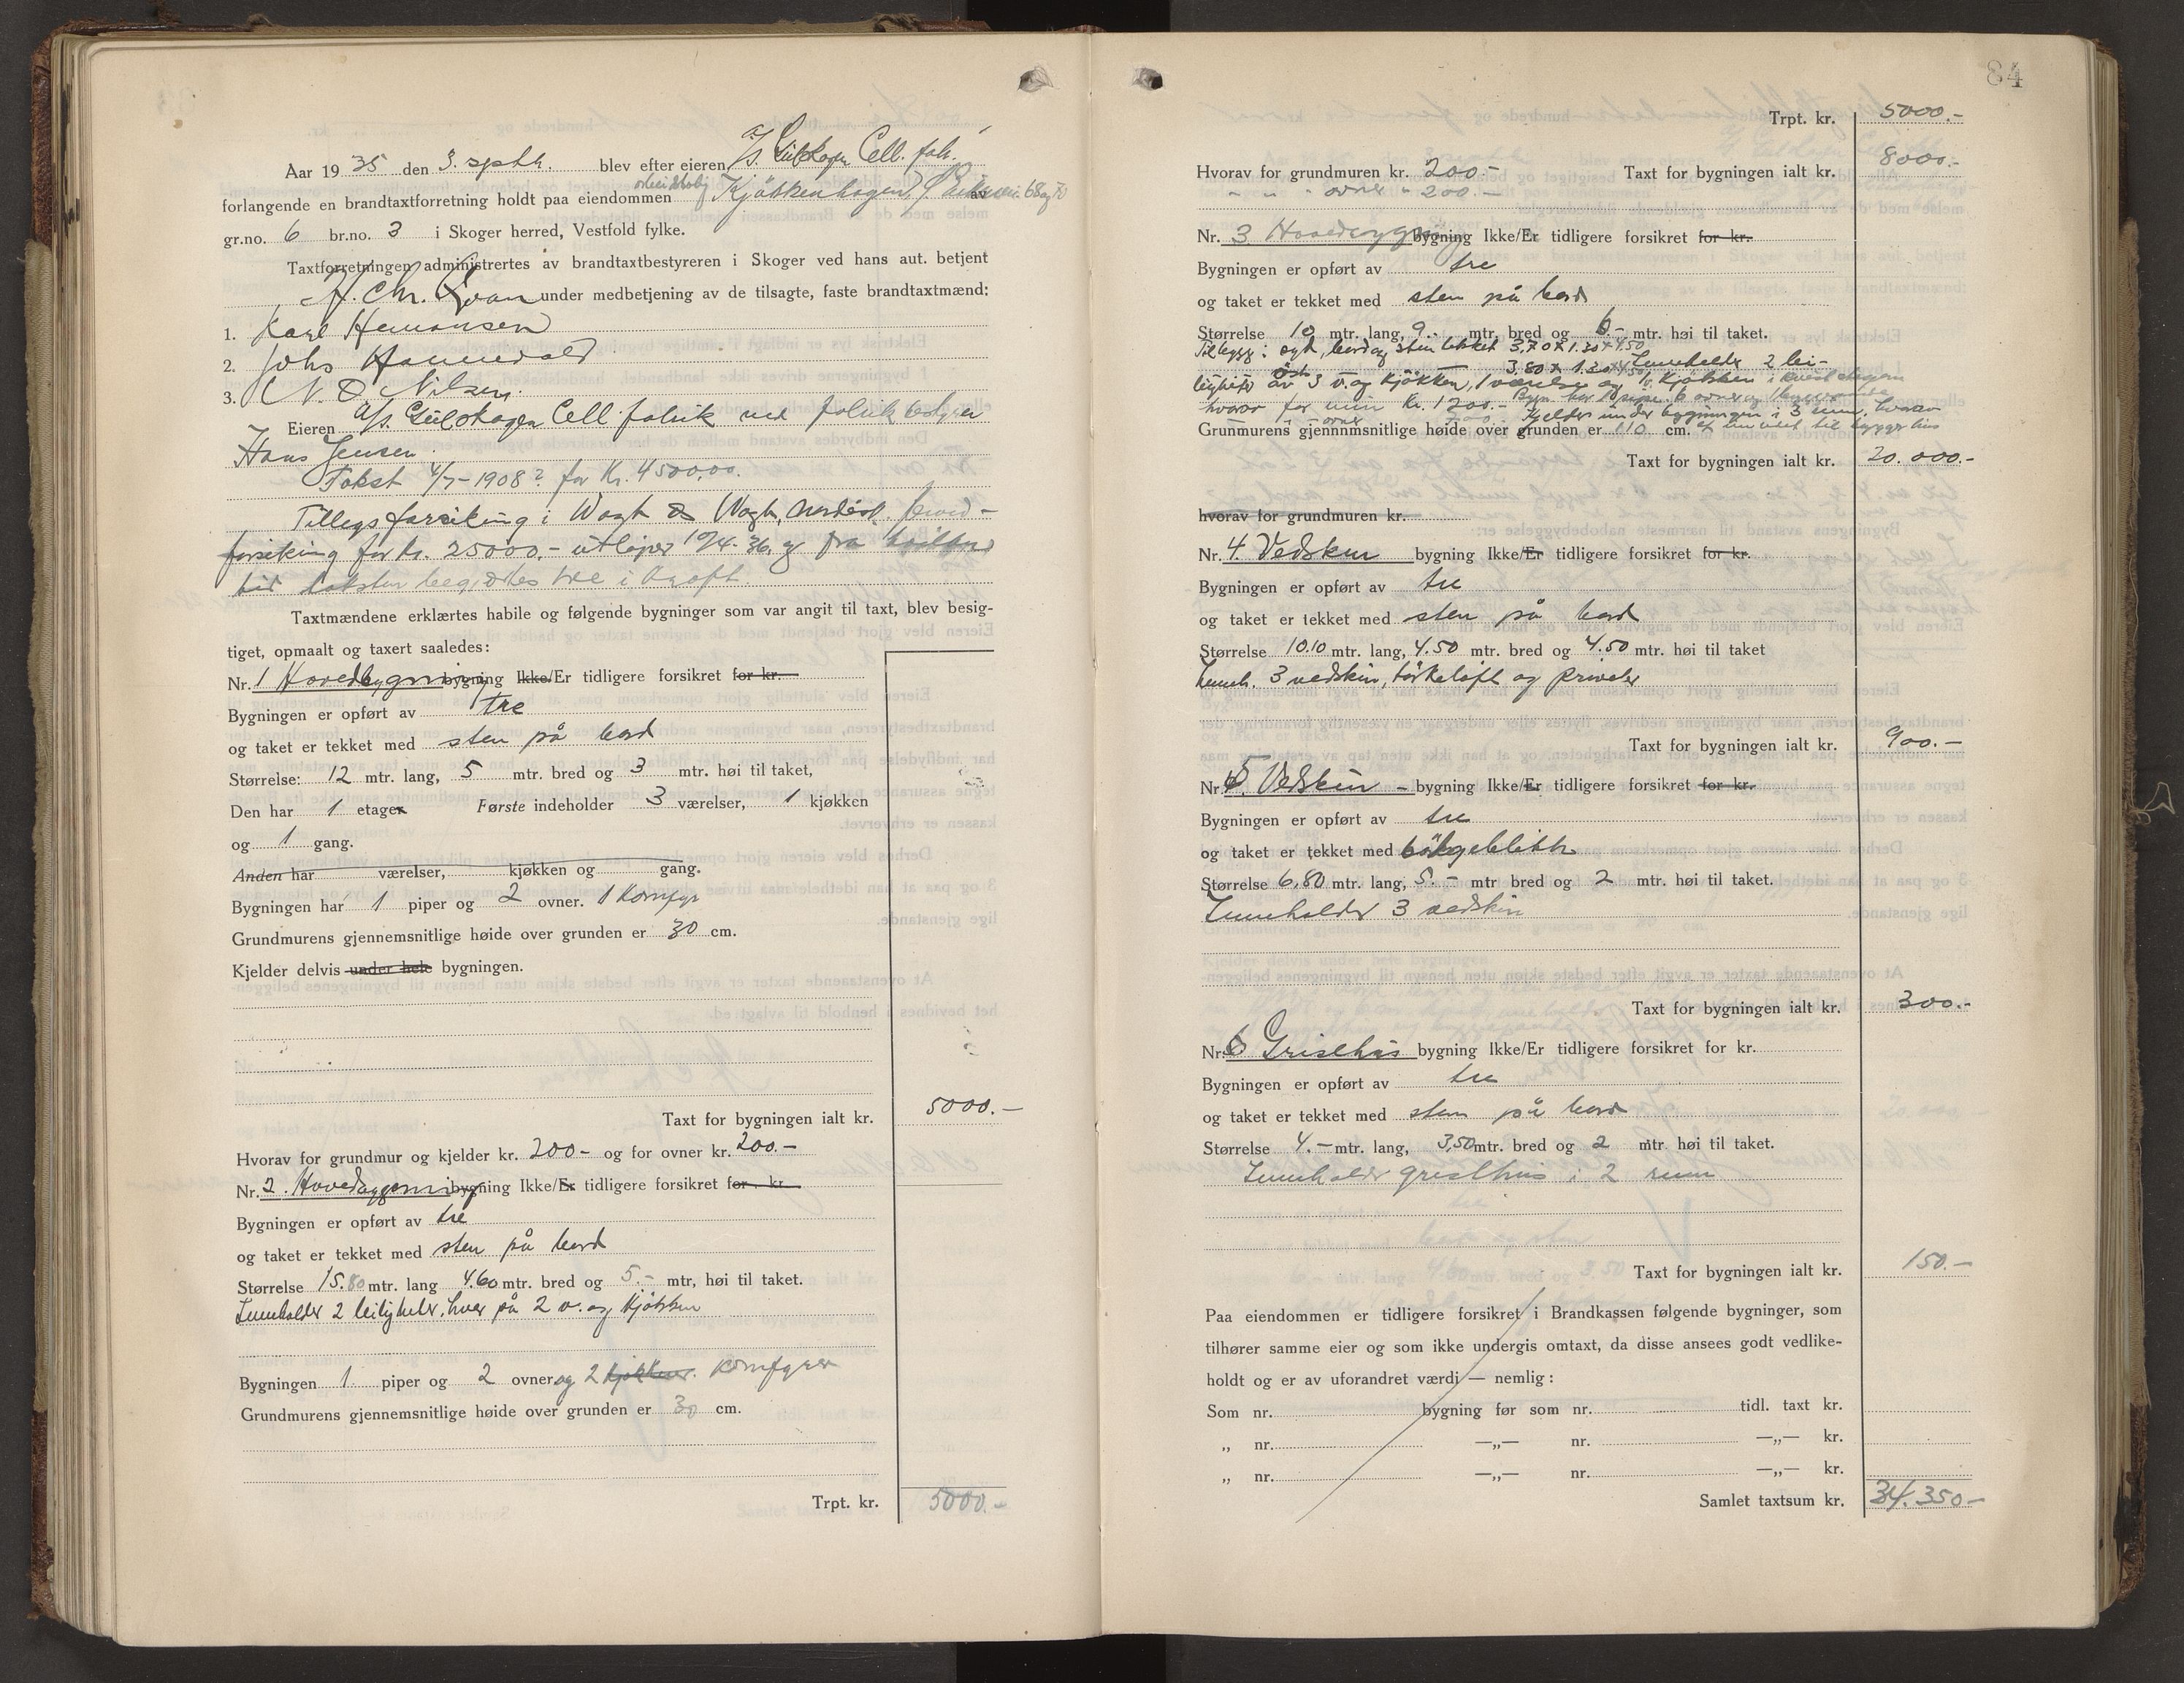 Aar 1935 den 3. septb. blev efter eieren A/S. Gulskogen Cell. fab.
forlangende en brandtaxtforretning holdt paa eiendommen arbeiderbolig Kjøkkenhagen, av 68 og 70
gr.no. 6 br.no. 3 i Skoger herred, Vestfold fylke.
Taxtforretningen administrertes av brandtaxtbestyreren i Skoger ved hans aut. betjent
H. Chr. under medbetjening av de tilsagte, faste brandtaxtmænd:
1. Karl Hermansen
2. Johs Hannevold
3. N. O. Nilsen.
Eieren A/S. Gulskogen Cell. fabrik ved fabrikbestyrer
Hans Jensen.
Takst 4/7-1908? for Kr. 45000,00.
Tillegsforsikring i Wogt & Wogt, brand-
forsikring for Kr. 25000.- utløper 10/4-36, og fra
tid taksten begjæres tre i kraft.
Taxtmændene erklærtes habile og følgende bygninger som var angit til taxt, blev besig-
tiget, opmaalt og taxert saaledes:
Nr. 1 Hovedbygning bygning Ikke/Er tidligere forsikret for kr.
Bygningen er opført av tre
og taket er tekket med sten på bord
Størrelse: 12 mtr. lang, 5 mtr. bred og 3 mtr. høi til taket,
Den har 1 etager Første indeholder 3 værelser, 1 kjøkken
og 1 gang.
Anden har værelser, kjøkken og gang.
Bygningen har 1 piper og 2 ovner. 1 Komfyr
Grundmurens gjennemsnitlige høide over grunden er 30 cm.
Kjelder delvis under hele bygningen.
Taxt for bygningen ialt kr. 5000.-
Hvorav for grundmur og kjelder kr. 200- og for ovner kr. 200.-
Nr. 2. Hovedbygning bygning Ikke/Er tidligere forsikret for kr.
Bygningen er opført av tre
og taket er tekket med sten på bord
Størrelse 15.80 mtr. lang 4.60 mtr. bred og 5.- mtr, høi til taket.
Inneholder 2 leiligheter, hver på 2 v. og Kjøkken
Bygningen 1 piper og 2 ovner og 2 kjøkken. Komfyrer
Grundmurens gjennemsnitlige høide over grunden er 30 cm.
Trpt. kr. 5000.-
84
Trpt. kr. 5000.-
Hvorav for grundmuren kr. 200.- Taxt for bygningen ialt kr. 8000.-
" " " ovner " 200.-
Nr. 3 Hovedbygning bygning Ikke/Er tidligere forsikret for kr.
Bygningen er opført av tre
og taket er tekket med sten på bord
Størrelse 18 mtr. lang, 9.- mtr. bred og 6.- mtr. høi til taket.
Tilbygg: syd, bord og sten tekket 3,70 x 1.30 x 4.50
3.80 x 1.30 x 4.50 Inneholder 2 lei-
ligheter av 3 v. og kjøkken, 1 værelse og 1 kjøkken i kvistetagen
hvorav for mur Kr. 1200.- Bygn. har 1 pipe, 6 ovner og
ovner Kjelder under bygningen i 3 rum, hvorav
Grunmurens gjennnmsnitlige høide over grunden er 110 cm. et innredet til bryggerhus
Taxt for bygningen ialt kr. 20.000.-
hvorav for grundmuren kr.
Nr. 4. Vedskur bygning Ikke/Er tidligere forsikret for kr.
Bygningen er opført av tre
og taket er tekket med sten på bord
Størrelse 10.10 mtr. lang, 4.50 mtr. bred og 4.50 mtr. høi til taket
Inneh. 3 vedskur, tørkeloft og priveter
Taxt for bygningen ialt kr. 900.-
Nr. 5. Vedskur - bygning Ikke/Er tidligere forsikret for kr.
Bygningen er opført av tre
og taket er tekket med bølgeblikk
Størrelse 6,80 mtr. lang, 5.- mtr bred og 2 mtr. høi til taket.
Inneholder 3 vedskur
Taxt for bygningen ialt kr. 300.-
Nr. 6 Grisehus bygning Ikke/Er tidligere forsikret for kr.
Bygningen er opført av tre
og taket er tekket med sten på bord
Størrelse 4.- mtr. lang, 3,50 mtr. bred og 2 mtr. høi til taket.
Inneholder grisehus i 2 rum
Taxt for bygningen ialt kr. 150.-
Paa eiendommen er tidligere forsikret i Brandkassen følgende bygninger, som
tilhører samme eier og som ikke undergis omtaxt, da disse ansees godt vedlike-
holdt og er av uforandret værdi — nemlig:
Som nr. bygning før som nr. tidl. taxt kr.
„ nr. —„— nr. —„— kr.
„ nr. —„— nr. —„— kr.
Samlet taxtsum kr. 34.350-